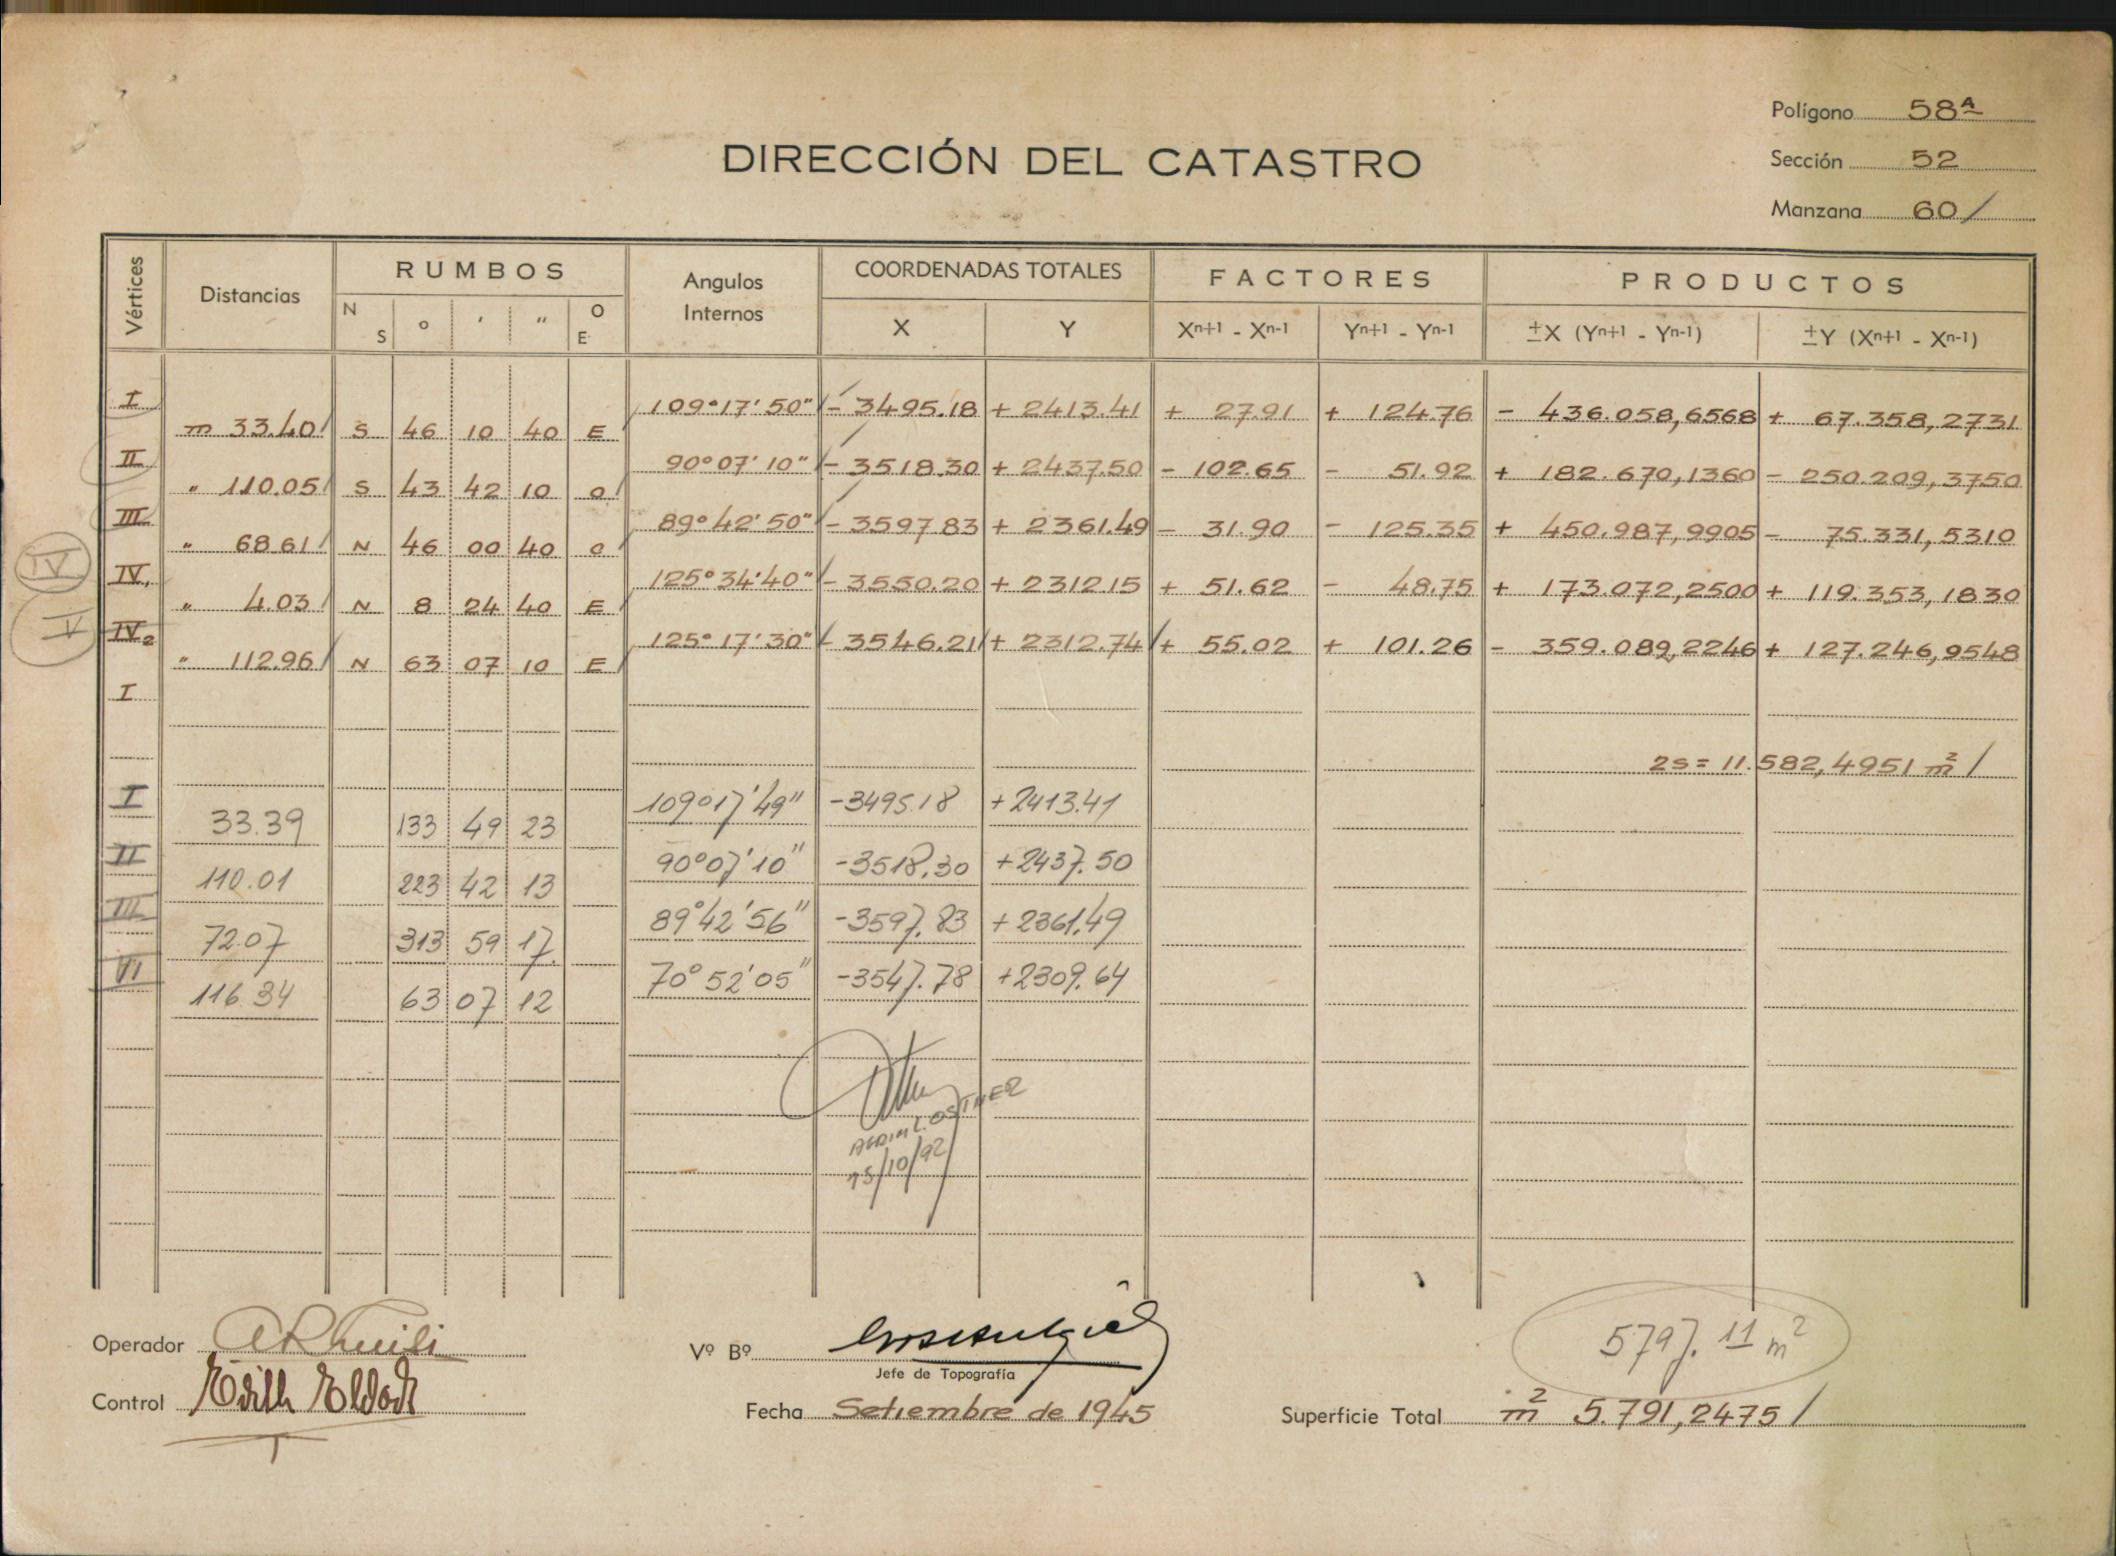 Polígono 58ª
Sección 52
Manzana 60/
DIRECCIÓN DEL CATASTRO
Vértices Distancias RUMBOS Angulos Internos COORDENADAS TOTALES FACTORES PRODUCTOS
N S o ' " O E X Y Xn+1 - Xn-1 Yn+1 - Yn-1 ±X (Yn+1 - Yn-1) ±Y (Xn+1 - Xn-1)
I 109°17'50" - 3495.18 + 2413.41 + 27.91 + 124.76 - 436.058,6568 + 67.358,2731
m 33.40 S 46 10 40 E
II 90°07'10" - 3518.30 + 2437.50 - 102.65 - 51.92 + 182.670,1360 - 250.209,3750
" 110.05 S 43 42 10 O
III 89°42'50" - 3597.83 + 2361.49 - 31.90 - 125.35 + 450.987,9905 - 75.331,5310
" 68.61 N 46 00 40 O
IV IV1 125°34'40" - 3550.20 + 2312.15 + 51.62 - 48.75 + 173.072,2500 + 119.353,1830
" 4.03 N 8 24 40 E
V IV2 125°17'30" - 3546.21 + 2312.74 + 55.02 + 101.26 - 359.089,2246 + 127.246,9548
" 112.96 N 63 07 10 E
I
2s = 11.582,4951 m² /
I 109°17'49" -3495.18 +2413.41
33.39 133 49 23
II 90°07'10" -3518.30 +2437.50
110.01 223 42 13
III 89°42'56" -3597.83 +2361.49
72.07 313 59 17
VI 70°52'05" -3547.78 +2309.64
116.34 63 07 12
15/10/92
5797.11 m²
Operador
Vº Bº
Jefe de Topografía
Control
Fecha Setiembre de 1945
Superficie Total m² 5.791,2475 /